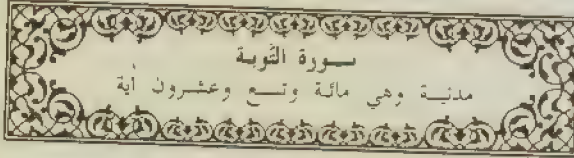 سورة التوبة
مدنية وهي مائة وتسع وعشرون أية